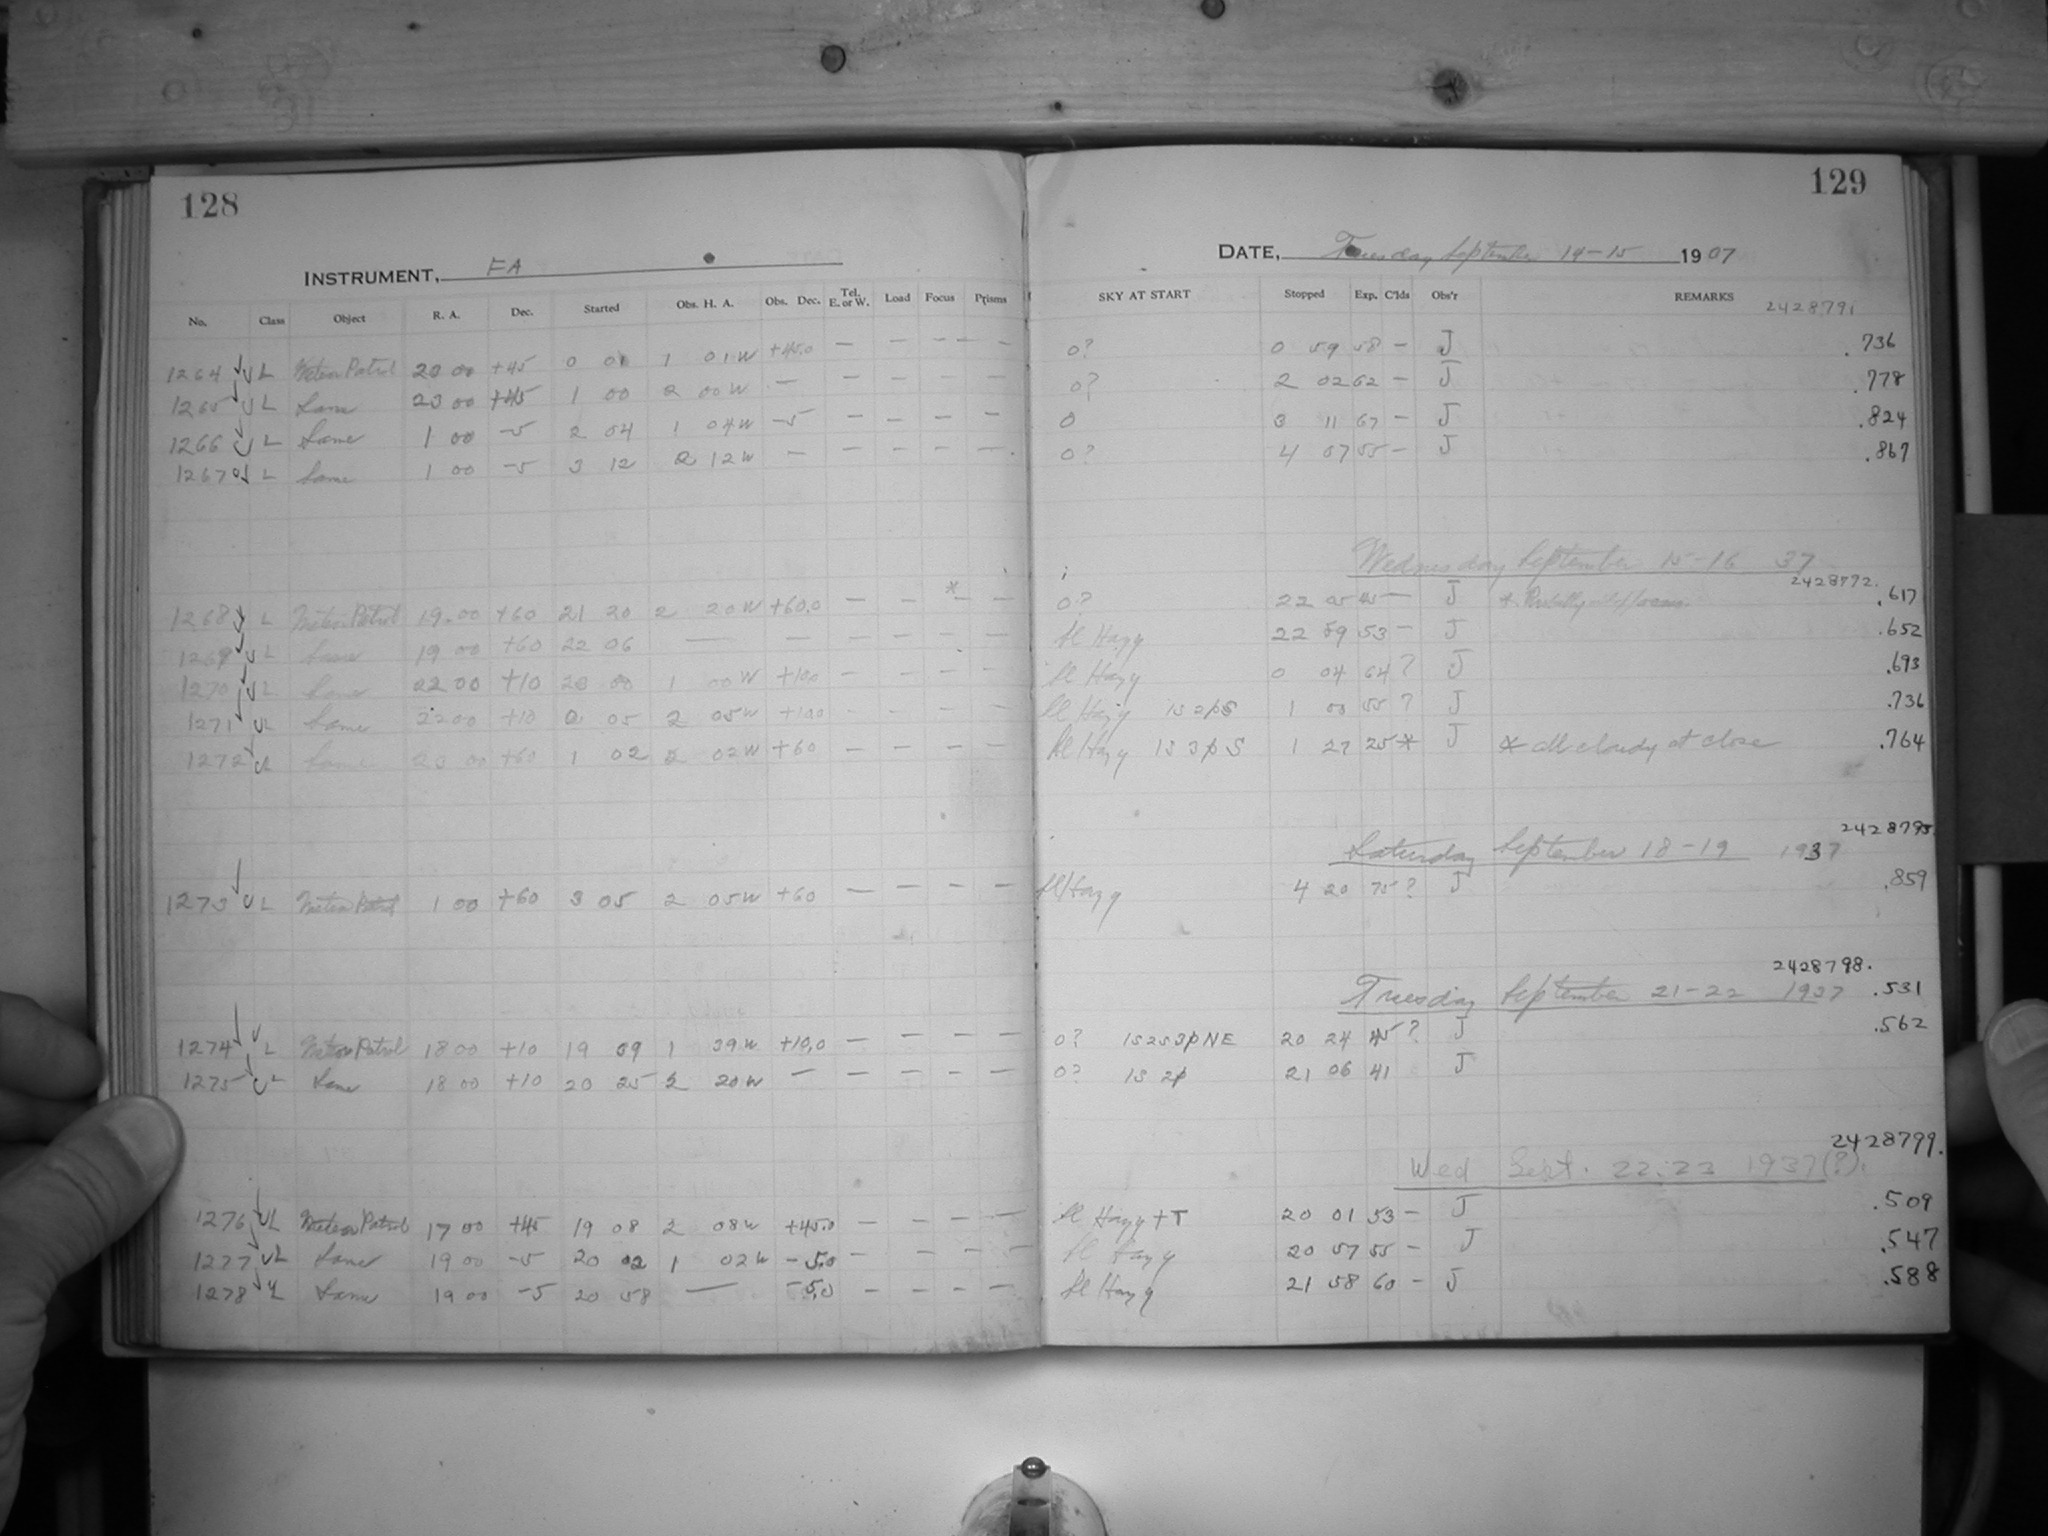 128
INSTRUMENT, FA
No. Class Object R. A. Dec. Started Obs. H. A. Obs. Dec. Tel. E. or W. Load Focus Prisms
1264 L Meteor Patrol 23 00 +45 0 01 1 01W +45.0 — — — — —
1265 L Same 23 00 +45 1 00 2 00W — — — — —
1266 L Same 1 00 -5 2 04 1 04W -5 — — — —
1267 L Same 1 00 -5 3 12 2 12W — — — — —
1268 L Meteor Patrol 19.00 +60 21 20 2 20W +60.0 — — *— —
1269 L Same 19 00 +60 22 06 — — — — — —
1270 L Same 22 00 +10 23 00 1 00W +10.0 — — — —
1271 L Same 22 00 +10 0 05 2 05W +10.0 — — — —
1272 L Same 23 00 +60 1 02 2 02W +60 — — — —
1273 L Meteor Patrol 1 00 +60 3 05 2 05W +60 — — — —
1274 L Meteor Patrol 18 00 +10 19 39 1 39W +10.0 — — — —
1275 L Same 18 00 +10 20 25 2 20W — — — — —
1276 L Meteor Patrol 17 00 +45 19 08 2 08W +45.0 — — — —
1277 L Same 19 00 -5 20 02 1 02W -5.0 — — — —
1278 L Same 19 00 -5 20 58 — -5.0 — — — —
129
DATE, Tuesday September 14-15 1937
SKY AT START Stopped Exp. C'lds Obs'r REMARKS
2428791
0? 0 59 58 — J .736
0? 2 02 62 — J .778
0 3 11 67 — J .824
0? 4 07 55 — J .867
Wednesday September 15-16 37
2428792.
0? 22 05 45 — J * Probably out of focus. .617
Sl Hazy 22 59 53 — J .652
Sl Hazy 0 04 64 ? J .693
Sl Hazy 1S 2pS 1 00 55 ? J .736
Sl Hazy 1S 3pS 1 27 25 * J * all cloudy at close .764
2428795.
Saturday September 18-19 1937
Sl Hazy 4 20 75 ? J .859
2428798.
Tuesday September 21-22 1937 .531
0? 1S2S3pNE 20 24 45 ? J .562
0? 1S 2p 21 06 41 J
2428799.
Wed Sept. 22-23 1937(?).
Sl Hazy + T 20 01 53 — J .509
Sl Hazy 20 57 55 — J .547
Sl Hazy 21 58 60 — J .588